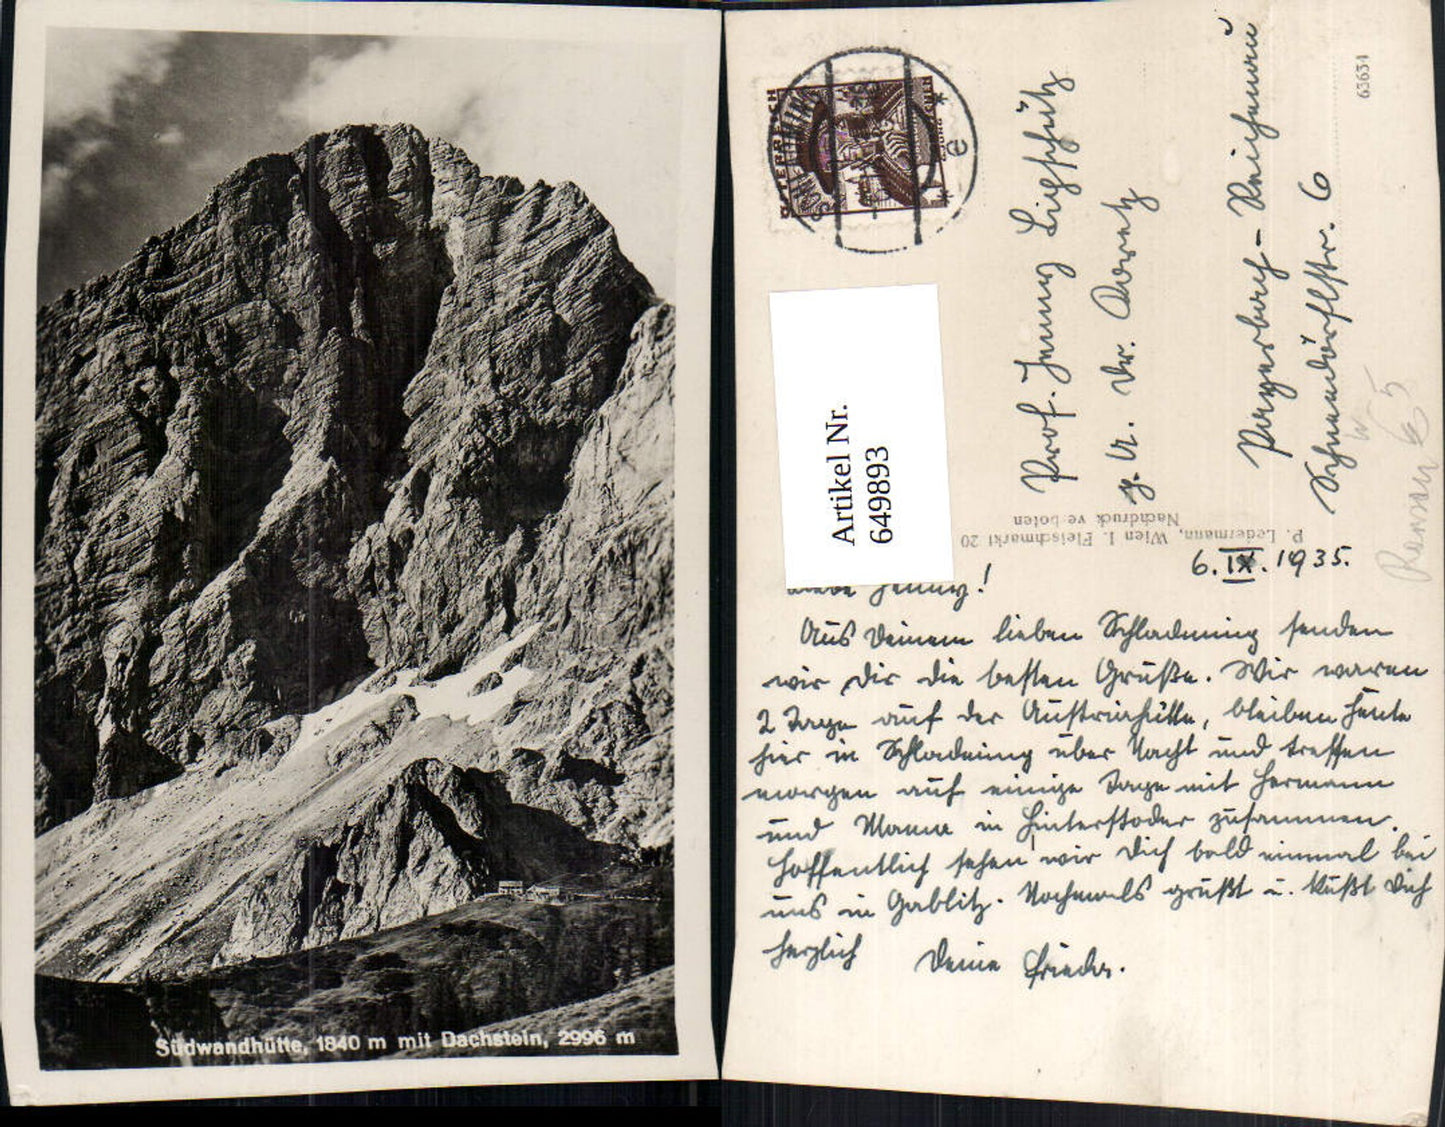 Südwandhütte, 1840 m mit Dachstein, 2996 m
ÖSTERREICH
SCHLADMING
e
Artikel Nr.
649893
Prof. Jenny
b. A. Dr.
Payerbach-Reichenau
Schneedörflstr. 6
63634
P. Ledermann, Wien I. Fleischmarkt 20
Nachdruck verboten
6.IX.1935.
Liebe Jenny!
Aus Deinem lieben Schladming senden
wir Dir die besten Grüße. Wir waren
2 Tage auf der Austriahütte, bleiben heute
hier in Schladming über Nacht und treffen
morgen auf einige Tage mit Hermann
und Mama in Hinterstoder zusammen.
Hoffentlich sehen wir Dich bald einmal bei
uns in Gablitz. Nochmals grüßt u. küßt Dich
herzlich Deine Frieda.